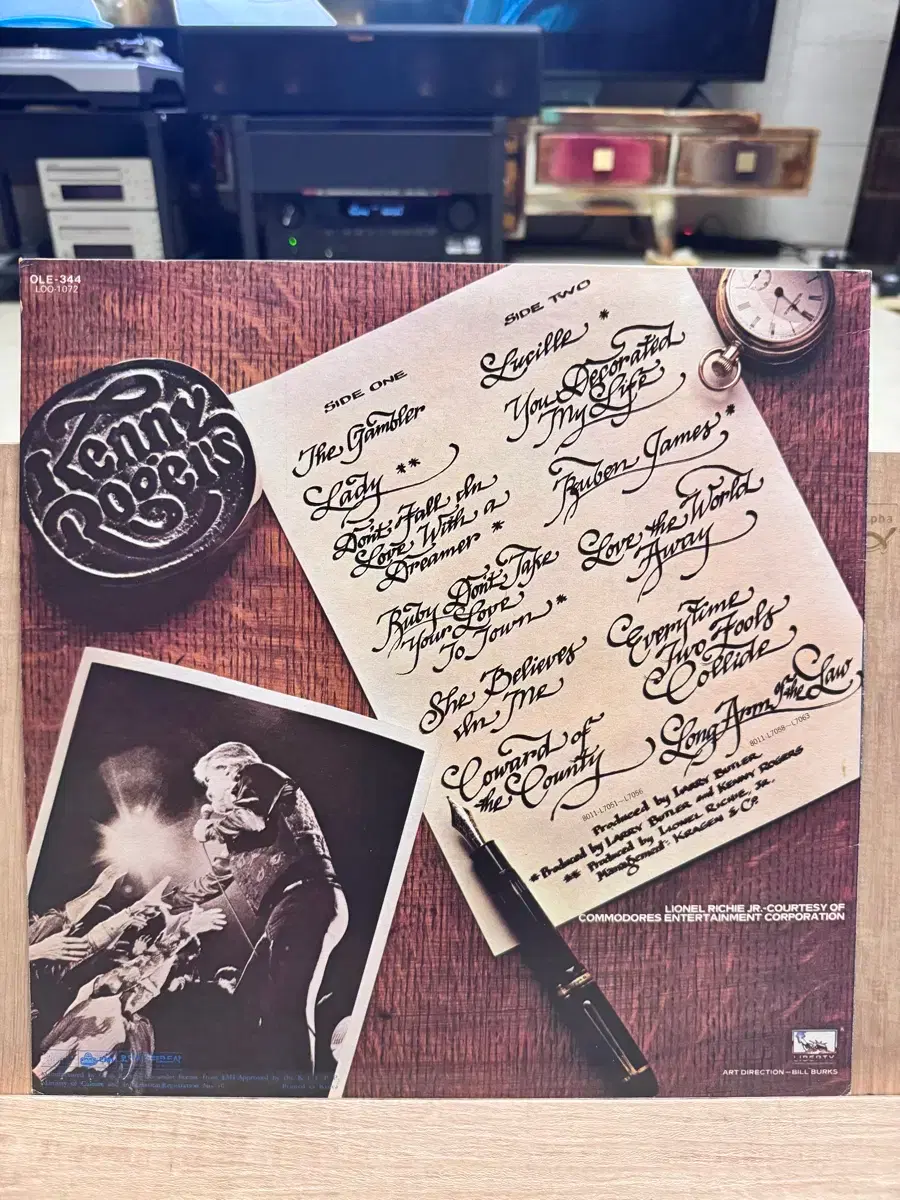 OLE-344
LOO-1072
Kenny
Rogers
SIDE ONE
The Gambler
Lady **
Don't Fall In
Love With a
Dreamer *
Ruby Don't Take
Your Love
To Town *
She Believes
In Me
Coward of
the County
8011-L7051~L7056
SIDE TWO
Lucille *
You Decorated
My Life
Reuben James *
Love the World
Away
Everytime
Two Fools
Collide
Long Arm of the Law
8011-L7058~L7063
Produced by LARRY BUTLER
*Produced by LARRY BUTLER and KENNY ROGERS
** Produced by LIONEL RICHIE, JR.
Management: KRAGEN & CO.
LIONEL RICHIE JR.-COURTESY OF
COMMODORES ENTERTAINMENT CORPORATION
LIBERTY
ART DIRECTION—BILL BURKS